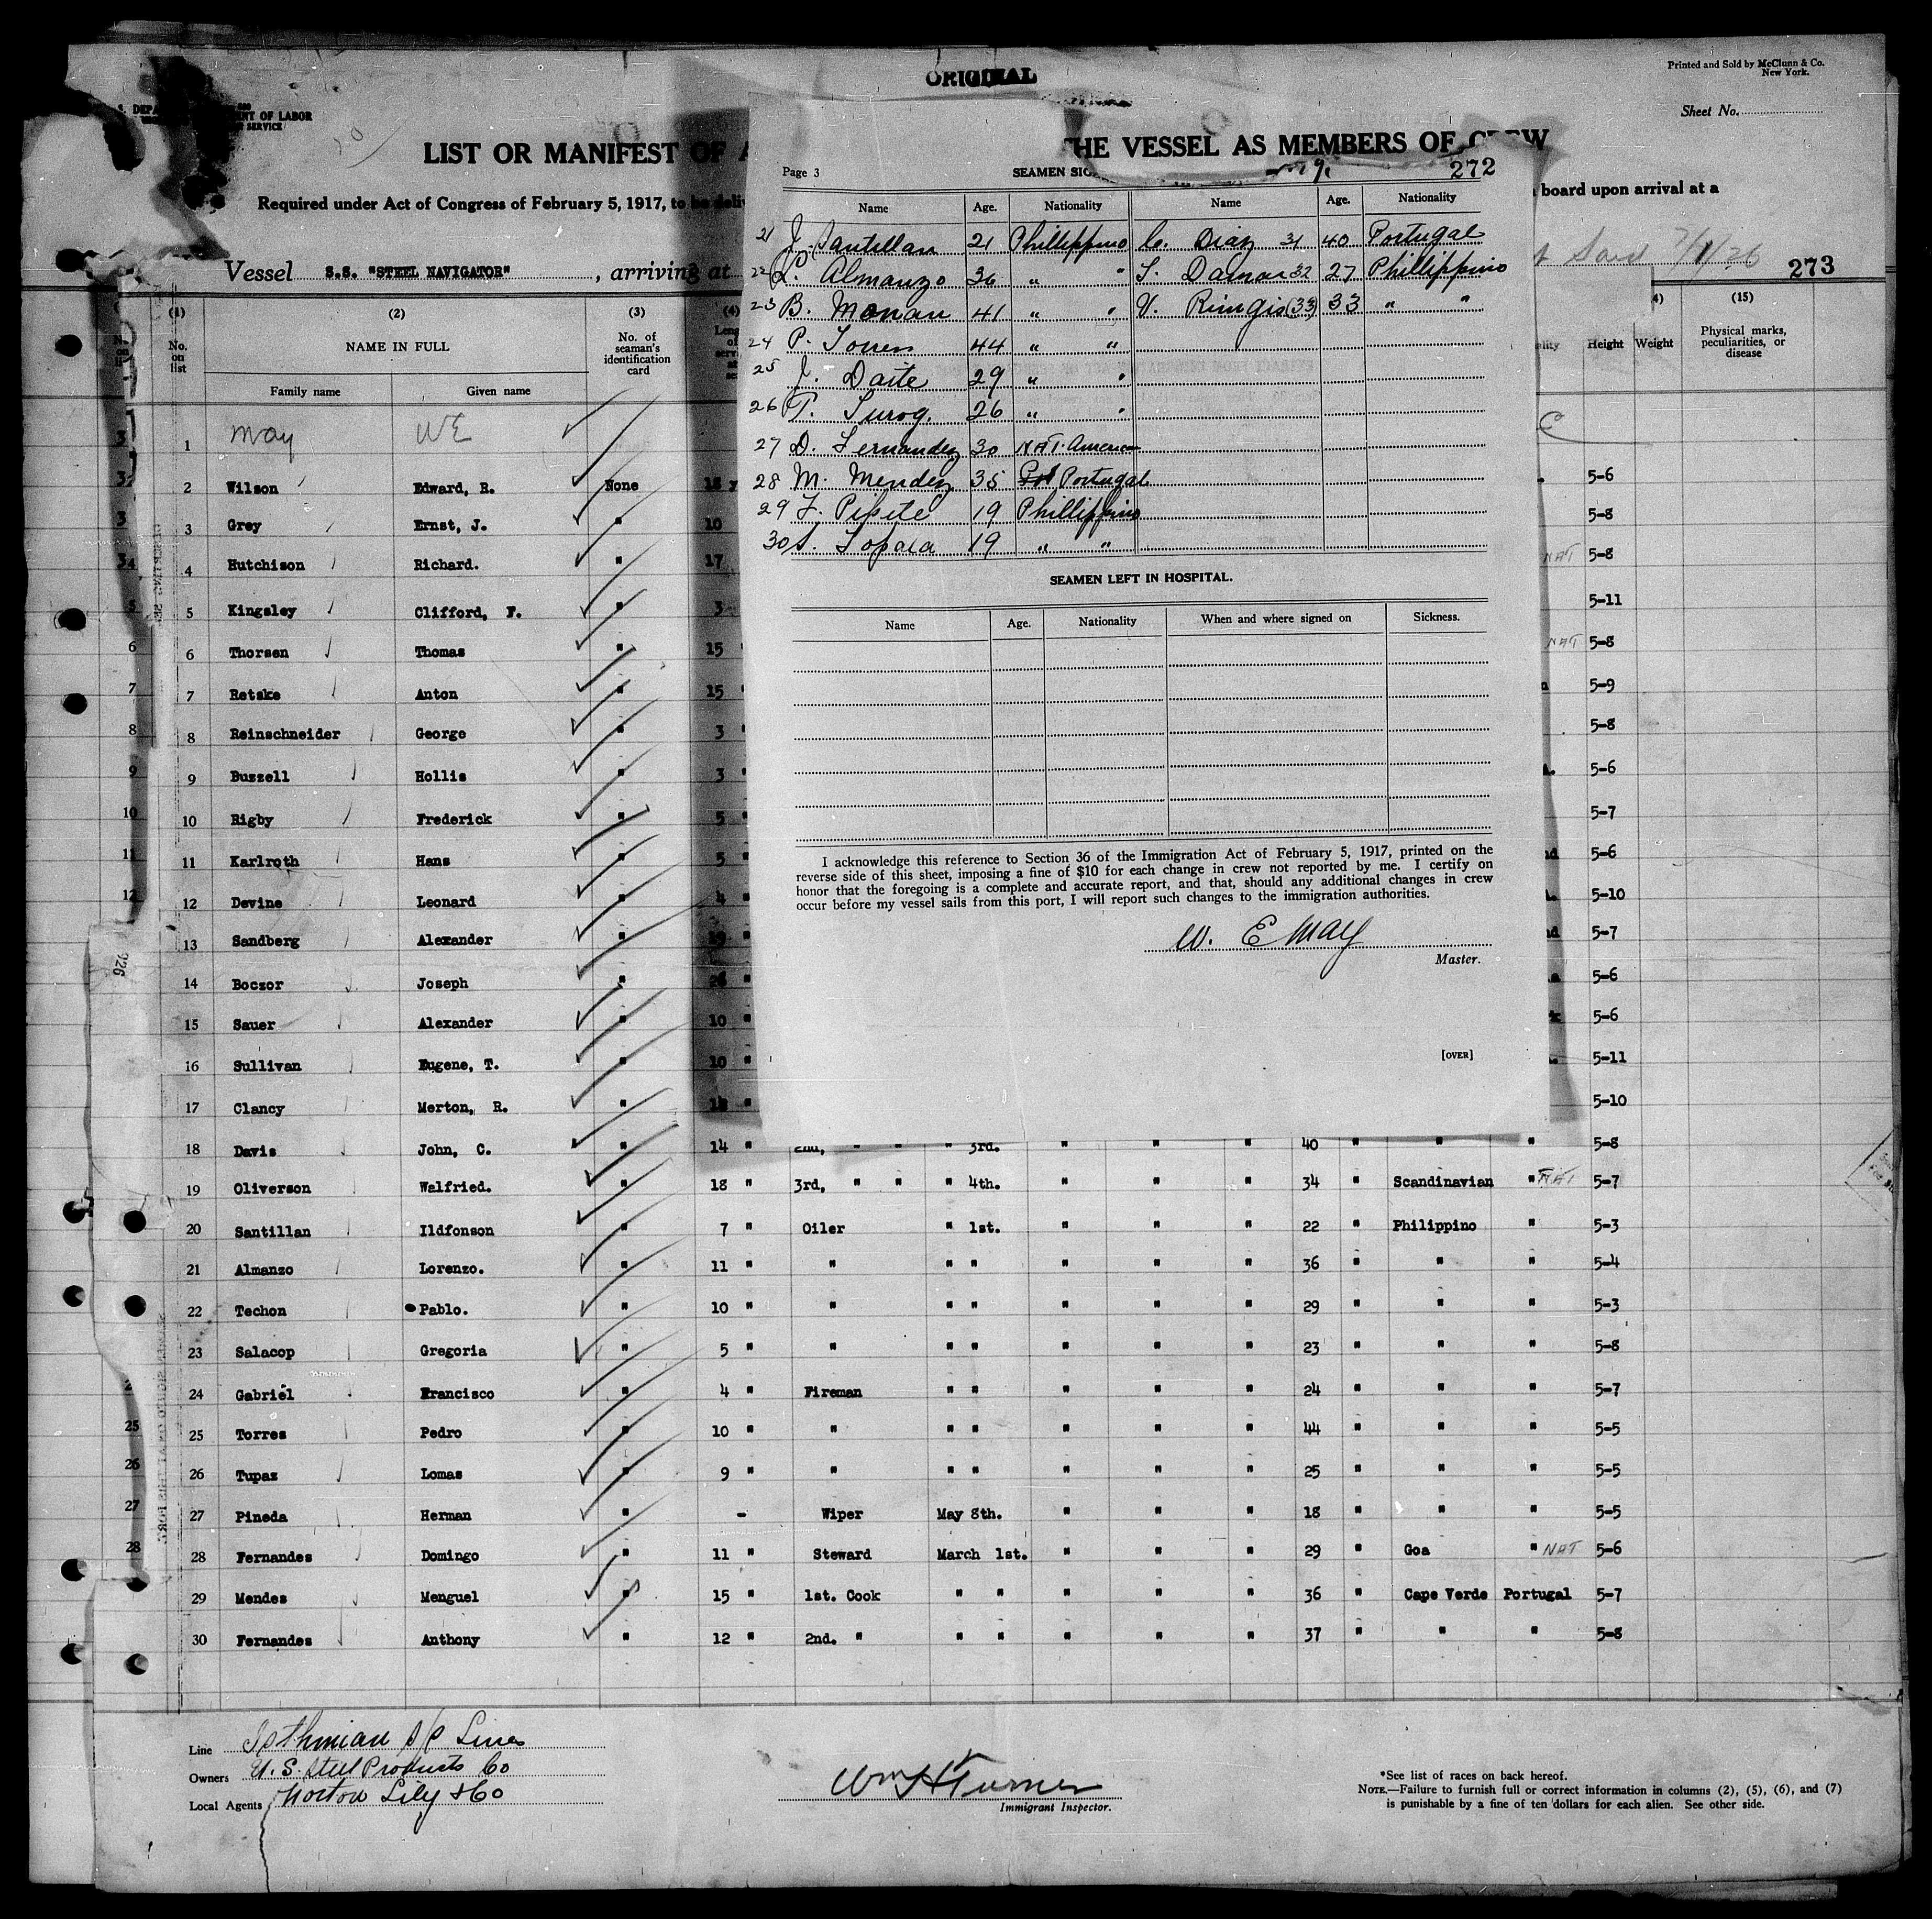 ORIGINAL
Printed and Sold by McClunn & Co.
New York.
Sheet No.
OF LABOR
SERVICE
LIST OR MANIFEST OF
THE VESSEL AS MEMBERS OF CREW
Required under Act of Congress of February 5, 1917, to be
board upon arrival at a
Vessel S.S. "STEEL NAVIGATOR", arriving at
7/1/26
273
Page 3
272
Name Age. Nationality Name Age. Nationality
21 J. Santillan 21 Phillippino C. Diaz 31 40 Portugal
22 L. Almanzo 36 " " 32 27 Phillippino
23 B. Monan 41 " " V. Ringis (33) 33 " "
24 P. Torres 44 " "
25 J. Daite 29 " "
26 T. Surog. 26 " "
27 D. Fernandez 30 NAT. American
28 M. Mendez 35 Portugal
29 F. Pisete 19 Phillippino
30 S. Lopaca 19 " "
SEAMEN LEFT IN HOSPITAL.
Name Age. Nationality When and where signed on Sickness.
I acknowledge this reference to Section 36 of the Immigration Act of February 5, 1917, printed on the
reverse side of this sheet, imposing a fine of $10 for each change in crew not reported by me. I certify on
honor that the foregoing is a complete and accurate report, and that, should any additional changes in crew
occur before my vessel sails from this port, I will report such changes to the immigration authorities.
W. E May
Master.
[OVER]
(1) (2) (3) (4) (15)
No. on list NAME IN FULL No. of seaman's identification card Height Weight Physical marks, peculiarities, or disease
Family name Given name
1 May WE
2 Wilson Edward, R. None 15 5-6
3 Grey Ernst, J. " 10 5-8
4 Hutchison Richard. " 17 NAT 5-8
5 Kingsley Clifford, F. " 3 5-11
6 Thorsen Thomas " 15 " NAT 5-8
7 Retske Anton " 15 " 5-9
8 Reinschneider George " 3 " 5-8
9 Buzzell Hollis " 3 " 5-6
10 Rigby Frederick " 5 " 5-7
11 Karlroth Hans " 5 " 5-6
12 Devine Leonard " 4 " 5-10
13 Sandberg Alexander " 19 " 5-7
14 Boczor Joseph " 26 " 5-6
15 Sauer Alexander " 10 " 5-6
16 Sullivan Eugene, T. " 10 " 5-11
17 Clancy Merton, R. " " 5-10
18 Davis John, C. " 14 " 2nd, " " " 3rd. " " " 40 " " " 5-8
19 Oliverson Walfried. " 18 " 3rd, " " " 4th. " " " 34 " Scandinavian " NAT 5-7
20 Santillan Ildfonson " 7 " Oiler " 1st. " " " 22 " Philippino " 5-3
21 Almanzo Lorenzo. " 11 " " " " " " " 36 " " " 5-4
22 Techon Pablo. " 10 " " " " " " " 29 " " " 5-3
23 Salacop Gregoria " 5 " " " " " " " 23 " " " 5-8
24 Gabriel Francisco " 4 " Fireman " " " " " 24 " " " 5-7
25 Torres Pedro " 10 " " " " " " " 44 " " " 5-5
26 Tupaz Lomas " 9 " " " " " " " 25 " " " 5-5
27 Pineda Herman " - Wiper May 8th. " " " 18 " " " 5-5
28 Fernandes Domingo " 11 " Steward March 1st. " " " 29 " Goa " NAT 5-6
29 Mendes Menguel " 15 " 1st. Cook " " " " " 36 " Cape Verde Portugal 5-7
30 Fernandes Anthony " 12 " 2nd. " " " " " " 37 " " " 5-8
Line Isthmian S/S Lines
Owners U.S. Steel Products Co
Local Agents Norton Lily & Co
Wm H Turner
Immigrant Inspector.
*See list of races on back hereof.
NOTE.—Failure to furnish full or correct information in columns (2), (5), (6), and (7)
is punishable by a fine of ten dollars for each alien. See other side.